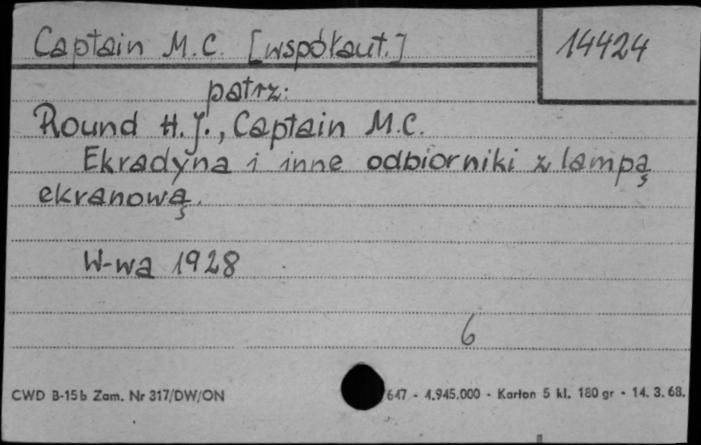 Captain M.C. [współaut.]
14424
patrz:
Round H.J., Captain M.C.
Ekradyna i inne odbiorniki z lampą
ekranową.
W-wa 1928
6
CWD B-15b Zam. Nr 317/DW/ON
647 - 4.945.000 - Karton 5 kl. 180 gr - 14. 3. 68.